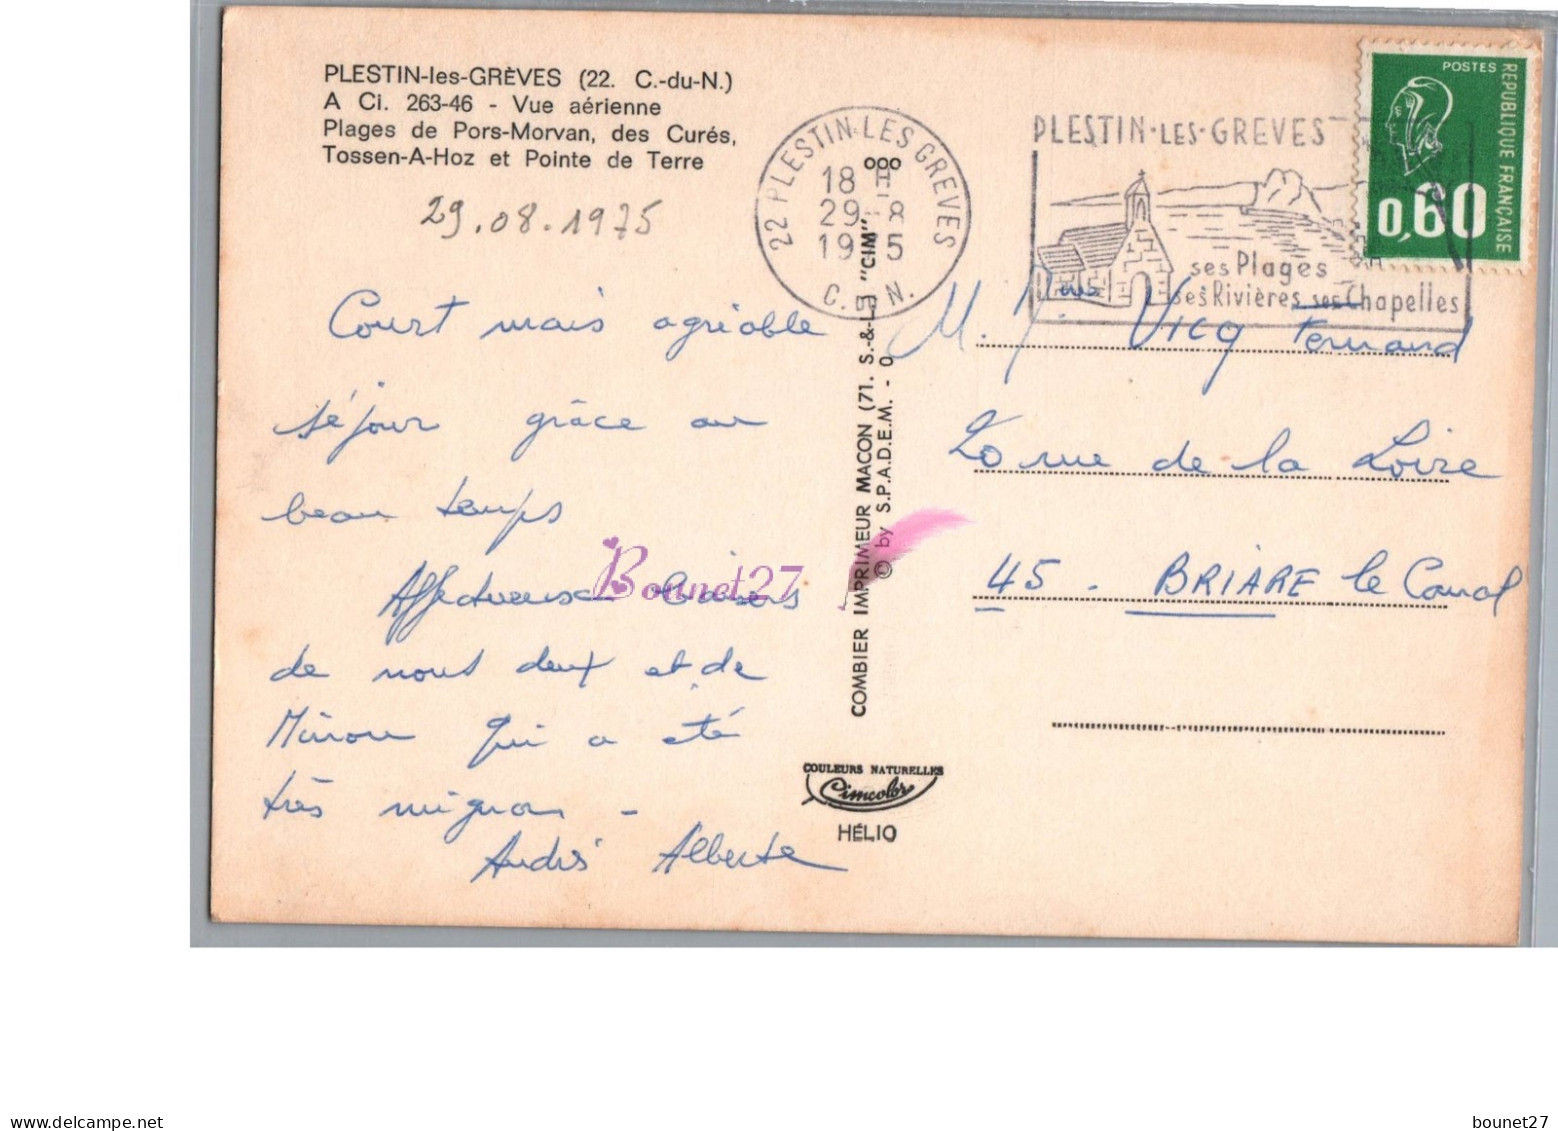 PLESTIN-les-GRÈVES (22. C.-du-N.)
A Ci. 263-46 - Vue aérienne
Plages de Pors-Morvan, des Curés,
Tossen-A-Hoz et Pointe de Terre
29.08.1975
Court mais agréable
séjour grâce au
beau temps
Affectueuse baisers
de nous deux et de
Minou qui a été
très mignon -
André Alberte
Bounet27
22 PLESTIN-LES GREVES
18 H
29 - 8
19 5
C. DU N.
COMBIER IMPRIMEUR MACON (71. S.-&-L.) "CIM"
© by S.P.A.D.E.M. - 0
COULEURS NATURELLES
Cimcolor
HÉLIO
PLESTIN-LES-GREVES
ses Plages
ses Rivières ses Chapelles
POSTES
REPUBLIQUE FRANÇAISE
0,60
M. Vicq Fernand
20 rue de la Loire
45 - BRIARE le Canal
delcampe.net
bounet27